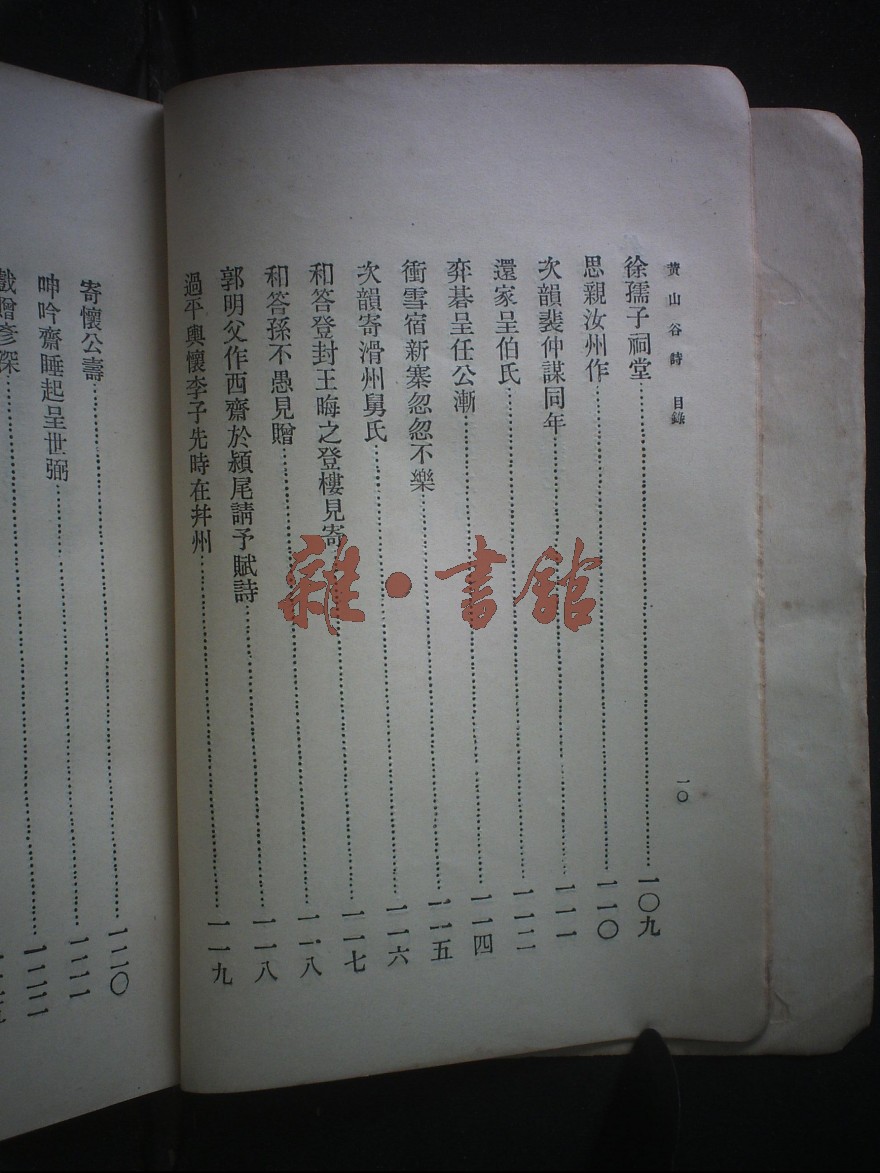 黄山谷詩 目錄
一〇
徐孺子祠堂……一〇九
思親汝州作……一一〇
次韻裴仲謀同年……一一一
還家呈伯氏……一一二
弈碁呈任公漸……一一四
衝雪宿新寨忽忽不樂……一一五
次韻寄滑州舅氏……一一六
和答登封王晦之登樓見寄……一一七
和答孫不愚見贈……一一八
郭明父作西齋於潁尾請予賦詩……一一八
過平輿懷李子先時在幷州……一一九
寄懷公壽……一二〇
呻吟齋睡起呈世弼……一二一
戲贈彥深……
雜·書館